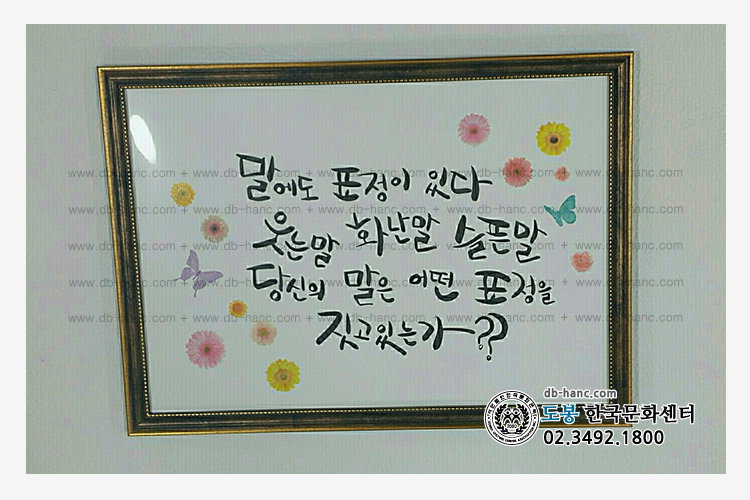 말에도 표정이 있다
웃는말 화난말 슬픈말
당신의 말은 어떤 표정을
짓고있는가??
www.db-hanc.com + www.db-hanc.com + www.db-hanc.com + www.db-hanc.com +
db-hanc.com
도봉 한국문화센터
02.3492.1800